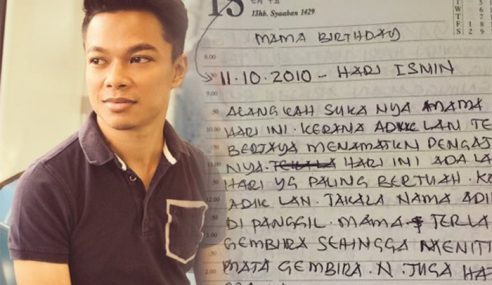 18
13hb. Syaaban 1429
MAMA BIRTHDAY
11.10.2010 - HARI ISNIN
ALANGKAH SUKA NYA AMAMA
HARI INI. KERANA ADIK LAN TE
BERJAYA MENAMATKN PENGAJ
NYA. HARI INI ADALA
HARI YG PALING BERTUAH. K
ADIK LAN. TAKALA NAMA ADI
DI PANGGIL. MAMA TERLA
GEMBIRA SEHINGGA MENITI
MATA GEMBIRA. N. JUGA HA